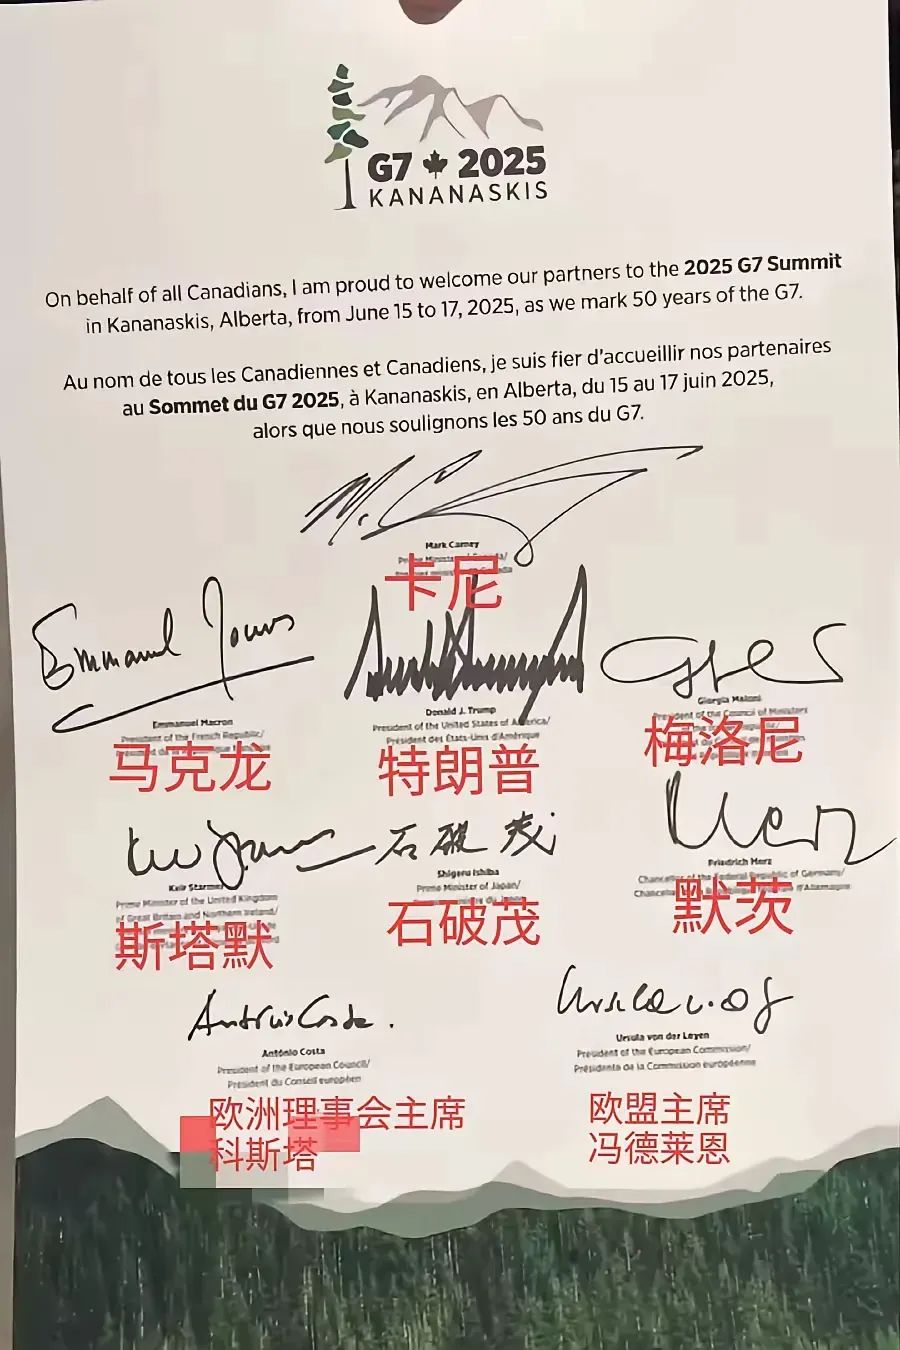 G7 2025
KANANASKIS
On behalf of all Canadians, I am proud to welcome our partners to the 2025 G7 Summit
in Kananaskis, Alberta, from June 15 to 17, 2025, as we mark 50 years of the G7.
Au nom de tous les Canadiennes et Canadiens, je suis fier d'accueillir nos partenaires
au Sommet du G7 2025, à Kananaskis, en Alberta, du 15 au 17 juin 2025,
alors que nous soulignons les 50 ans du G7.
M. C
Mark Carney
Prime Minister
卡尼
Emmanuel
Emmanuel Macron
President of the French Republic/
马克龙
Donald J. Trump
President of the United States of America/
Président des États-Unis d'Amérique
特朗普
Giorgia Meloni
President of the Council of Ministers
梅洛尼
Keir Starmer
Prime Minister of the United Kingdom
of Great Britain and Northern Ireland/
斯塔默
石破茂
Shigeru Ishiba
Prime Minister of Japan/
石破茂
Merz
Friedrich Merz
Chancellor of the Federal Republic of Germany/
默茨
António Costa.
António Costa
President of the European Council/
Président du Conseil européen
欧洲理事会主席
科斯塔
Ursula
Ursula von der Leyen
President of the European Commission/
Présidente de la Commission européenne
欧盟主席
冯德莱恩